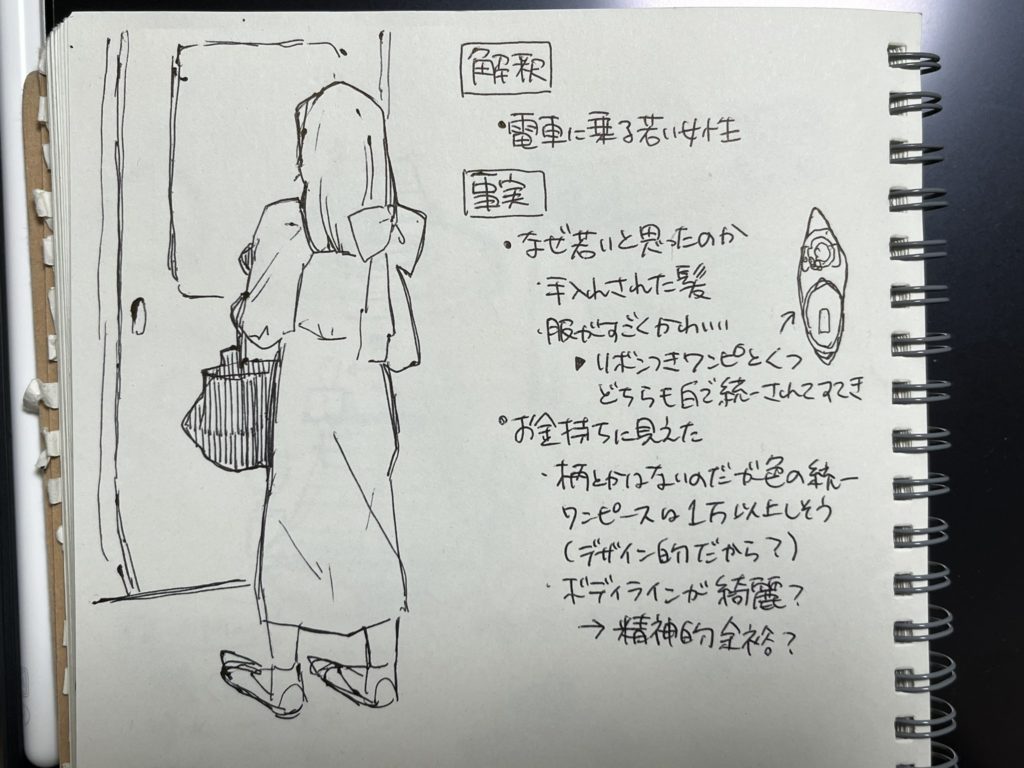 解釈
・電車に乗る若い女性
事実
・なぜ若いと思ったのか
・手入れされた髪
・服がすごくかわいい
▶リボンつきワンピとくつ
どちらも白で統一されてすてき
・お金持ちに見えた
・柄とかはないのだが色の統一
ワンピースは1万以上しそう
(デザイン的だから?)
・ボディラインが綺麗?
→精神的余裕?